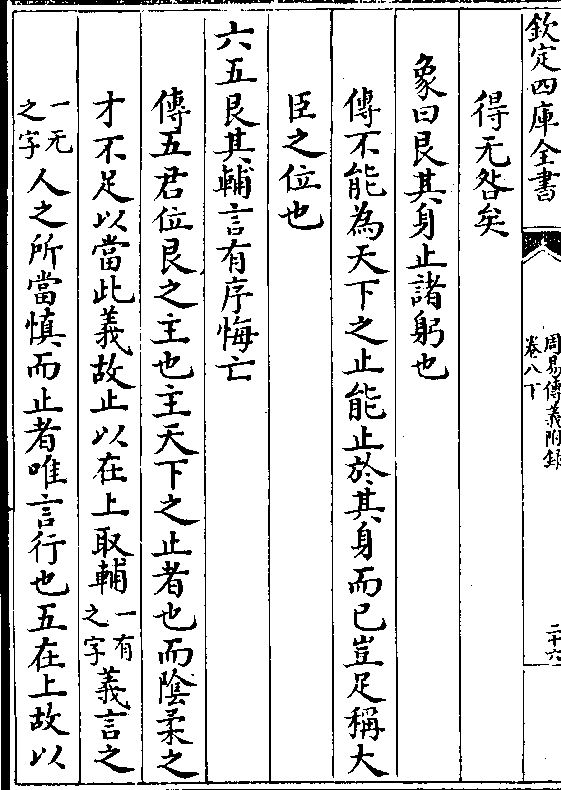 欽定四庫全書
周易傳義附錄
卷八下
二十六
得无咎矣
象曰艮其身止諸躬也
傳不能為天下之止能止於其身而已豈足稱大
臣之位也
六五艮其輔言有序悔亡
傳五君位艮之主也主天下之止者也而陰柔之
才不足以當此義故止以在上取輔一有之字義言之
一无之字人之所當慎而止者唯言行也五在上故以